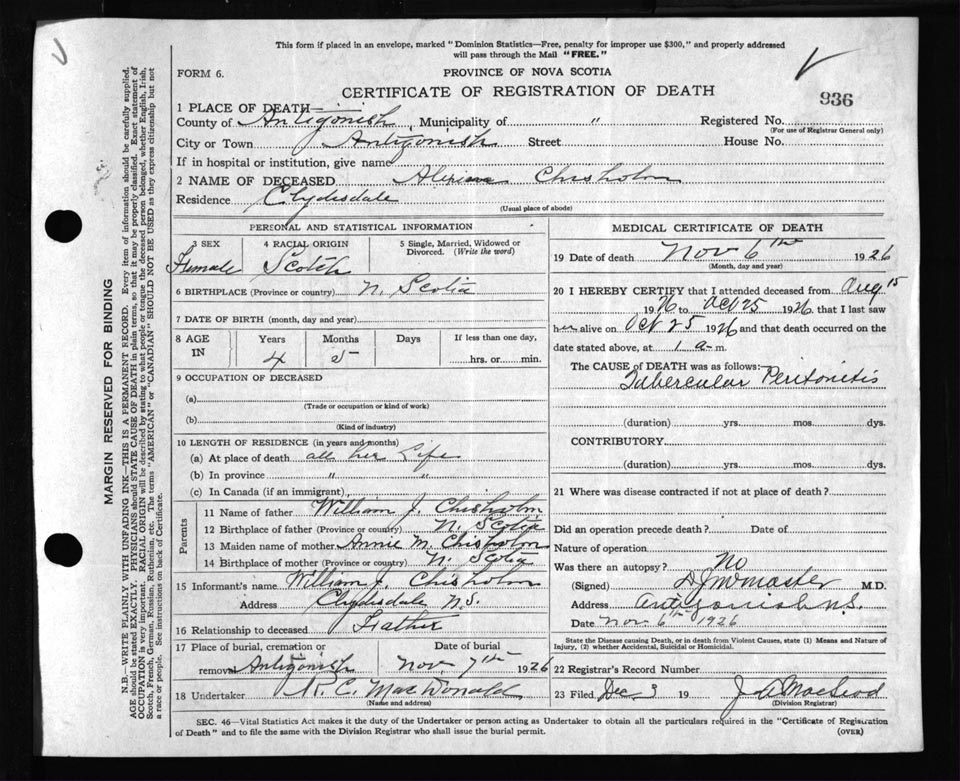 This form if placed in an envelope, marked "Dominion Statistics—Free, penalty for improper use $300," and properly addressed
will pass through the Mail "FREE."
FORM 6.
PROVINCE OF NOVA SCOTIA
CERTIFICATE OF REGISTRATION OF DEATH
936
1 PLACE OF DEATH—
County of Antigonish, Municipality of " Registered No.
(For use of Registrar General only)
City or Town Antigonish Street House No.
If in hospital or institution, give name
2 NAME OF DECEASED Chisholm
Residence Clydesdale
(Usual place of abode)
PERSONAL AND STATISTICAL INFORMATION
3 SEX 4 RACIAL ORIGIN 5 Single, Married, Widowed or Divorced. (Write the word)
Female Scotch
6 BIRTHPLACE (Province or country) N. Scotia
7 DATE OF BIRTH (month, day and year)
8 AGE IN Years Months Days If less than one day,
4 5 hrs. or min.
9 OCCUPATION OF DECEASED
(a)
(Trade or occupation or kind of work)
(b)
(Kind of industry)
10 LENGTH OF RESIDENCE (in years and months)
(a) At place of death all her Life
(b) In province " "
(c) In Canada (if an immigrant)
Parents
11 Name of father William J. Chisholm
12 Birthplace of father (Province or country) N. Scotia
13 Maiden name of mother Annie M. Chisholm
14 Birthplace of mother (Province or country) N. Scotia
15 Informant's name William J. Chisholm
Address Clydesdale N.S.
16 Relationship to deceased Father
17 Place of burial, cremation or Date of burial
removal Antigonish Nov 7th 1926
18 Undertaker R. C. MacDonald
(Name and address)
MEDICAL CERTIFICATE OF DEATH
19 Date of death Nov 6th 1926
(Month, day and year)
20 I HEREBY CERTIFY that I attended deceased from Aug 15
1926 to Oct 25 1926 that I last saw
her alive on Oct 25 1926 and that death occurred on the
date stated above, at 1 a.m.
The CAUSE OF DEATH was as follows:
Tubercular Peritonitis
(duration) yrs. mos. dys.
CONTRIBUTORY
(duration) yrs. mos. dys.
21 Where was disease contracted if not at place of death?
Did an operation precede death? Date of
Nature of operation
Was there an autopsy? No
(Signed) M.D.
Address Antigonish N.S.
Date Nov 6th 1926
State the Disease causing Death, or in death from Violent Causes, state (1) Means and Nature of
Injury, (2) whether Accidental, Suicidal or Homicidal.
22 Registrar's Record Number
23 Filed Dec 3 19 MacLeod
(Division Registrar)
SEC. 46—Vital Statistics Act makes it the duty of the Undertaker or person acting as Undertaker to obtain all the particulars required in the "Certificate of Registration
of Death" and to file the same with the Division Registrar who shall issue the burial permit.
(OVER)
MARGIN RESERVED FOR BINDING
N.B.—WRITE PLAINLY WITH UNFADING INK—THIS IS A PERMANENT RECORD. Every item of information should be carefully supplied.
AGE should be stated EXACTLY. PHYSICIANS should STATE CAUSE OF DEATH in plain terms, so that it may be properly classified. Exact statement of
OCCUPATION is very important. RACIAL ORIGIN will be described by stating to what people or tongue the deceased person belonged, whether English, Irish,
Scotch, French, German, Russian, Ruthenian, etc. The terms "AMERICAN" or "CANADIAN" SHOULD NOT BE USED as they express citizenship but not
a race or people. See instructions on back of Certificate.